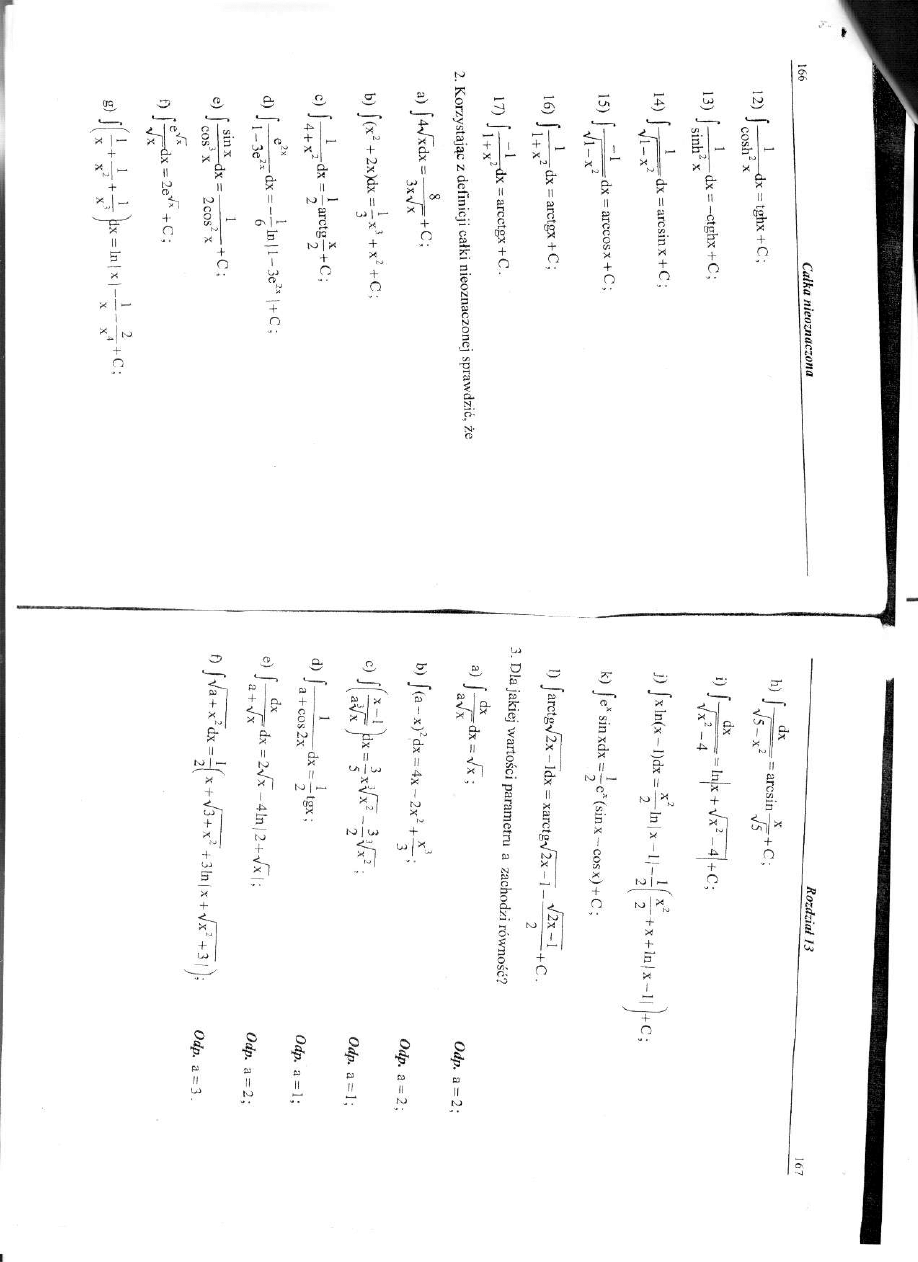 166 Całka nieoznaczona
12) ∫ 1/cosh² x dx = tghx + C;
13) ∫ 1/sinh² x dx = −ctghx + C;
14) ∫ 1/√(1−x²) dx = arcsin x + C;
15) ∫ −1/√(1−x²) dx = arccos x + C;
16) ∫ 1/(1+x²) dx = arctgx + C;
17) ∫ −1/(1+x²) dx = arcctgx + C.
2. Korzystając z definicji całki nieoznaczonej sprawdzić, że
a) ∫4√x dx = 8/(3x√x) + C;
b) ∫(x² + 2x)dx = 1/3 x³ + x² + C;
c) ∫ 1/(4+x²) dx = 1/2 arctg x/2 + C;
d) ∫ e^(2x)/(1−3e^(2x)) dx = −1/6 ln|1−3e^(2x)| + C;
e) ∫ sin x/cos³ x dx = 1/(2cos² x) + C;
f) ∫ e^(√x)/√x dx = 2e^(√x) + C;
g) ∫(1/x + 1/x² + 1/x³)dx = ln|x| − 1/x − 2/x⁴ + C;
Rozdział 13 167
h) ∫ dx/√(5−x²) = arcsin x/√5 + C;
i) ∫ dx/√(x²−4) = ln|x + √(x²−4)| + C;
j) ∫x ln(x−1)dx = x²/2 ln|x−1| − 1/2(x²/2 + x + ln|x−1|) + C;
k) ∫e^x sin xdx = 1/2 e^x (sin x − cos x) + C;
l) ∫arctg√(2x−1)dx = xarctg√(2x−1) − √(2x−1)/2 + C.
3. Dla jakiej wartości parametru a zachodzi równość?
a) ∫ dx/(a√x) dx = √x; Odp. a = 2;
b) ∫(a−x)² dx = 4x − 2x² + x³/3; Odp. a = 2;
c) ∫((x−1)/(a∛x))dx = 3/5 x∛x² − 3/2 ∛x²; Odp. a = 1;
d) ∫ 1/(a+cos 2x) dx = 1/2 tgx; Odp. a = 1;
e) ∫ dx/(a+√x) dx = 2√x − 4ln|2+√x|; Odp. a = 2;
f) ∫√(a+x²) dx = 1/2(x + √(3+x²) + 3ln|x + √(x²+3)|); Odp. a = 3.